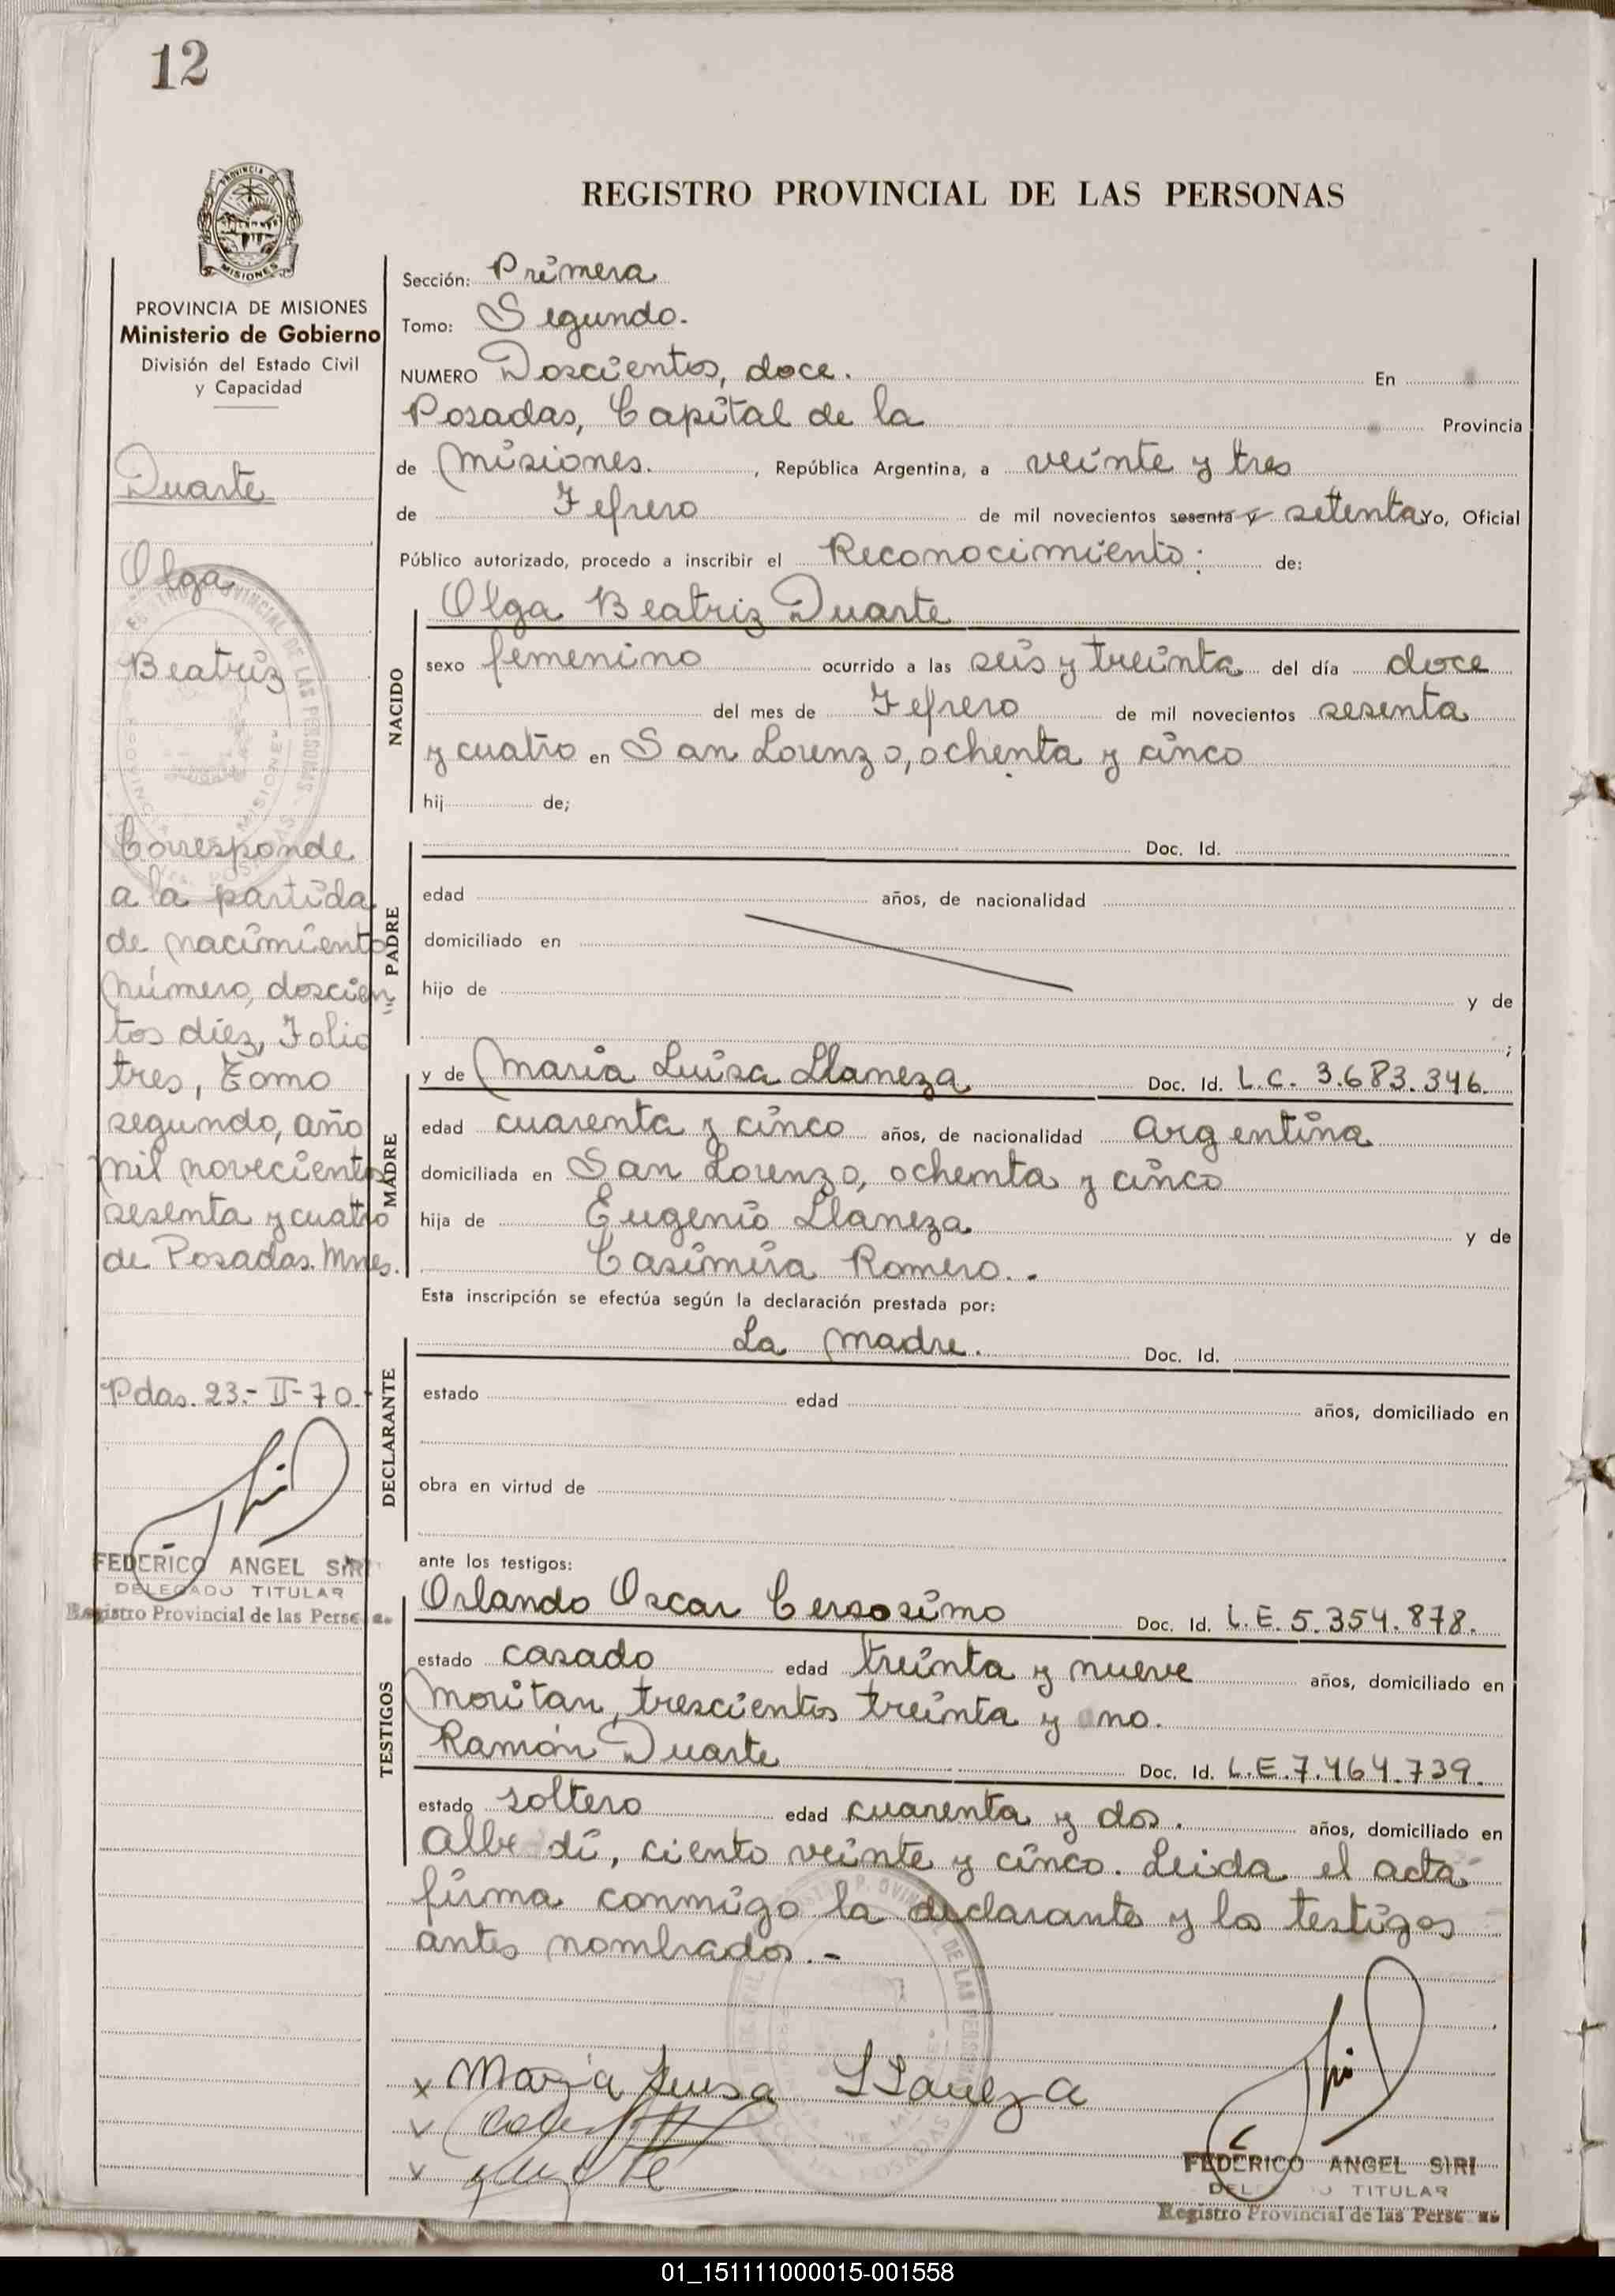 12
PROVINCIA DE
MISIONES
REGISTRO PROVINCIAL DE LAS PERSONAS
PROVINCIA DE MISIONES
Ministerio de Gobierno
División del Estado Civil
y Capacidad
Duarte
Olga
Beatriz
Corresponde
a la partida
de nacimiento
número, doscien
tos diez, Folio
tres, Tomo
segundo, año
mil novecientos
sesenta y cuatro
de Posadas. Mnes.
Pdas. 23.- II-70.-
FEDERICO ANGEL SIRI
DELEGADO TITULAR
Registro Provincial de las Perso as
Sección: Primera
Tomo: Segundo.
NUMERO Doscientos, doce. En
Posadas, Capital de la Provincia
de Misiones. , República Argentina, a veinte y tres
de Fefrero de mil novecientos sesenta y setenta Yo, Oficial
Público autorizado, procedo a inscribir el Reconocimiento: de:
Olga Beatriz Duarte
NACIDO
sexo femenino ocurrido a las seis y treinta del día doce
del mes de Fefrero de mil novecientos sesenta
y cuatro en San Lorenzo, ochenta y cinco
hij de;
PADRE
Doc. Id.
edad años, de nacionalidad
domiciliado en
hijo de y de
;
MADRE
y de María Luisa Llaneza Doc. Id. L.C. 3.683.346.
edad cuarenta y cinco años, de nacionalidad Argentina
domiciliada en San Lorenzo, ochenta y cinco
hija de Eugenio Llaneza y de
Casimira Romero..
Esta inscripción se efectúa según la declaración prestada por:
DECLARANTE
La madre. Doc. Id.
estado edad años, domiciliado en
obra en virtud de
ante los testigos:
TESTIGOS
Orlando Oscar Cersosimo Doc. Id. L.E. 5.354.878.
estado casado edad treinta y nueve años, domiciliado en
Moritan, trescientos treinta y uno.
Ramón Duarte Doc. Id. L.E. 7.464.739.
estado soltero edad cuarenta y dos. años, domiciliado en
Alberdi, ciento veinte y cinco. Leida el acta
firma conmigo la declarante y los testigos
antes nombrados.-
x Maria Luisa LLaneza
FEDERICO ANGEL SIRI
TITULAR
Registro Provincial de las Perso as
01_151111000015-001558